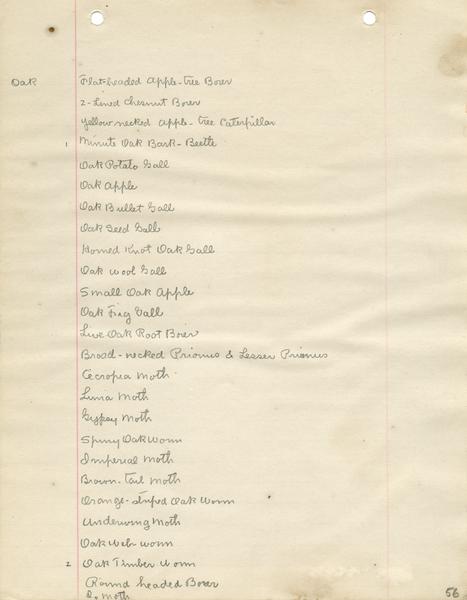 Oak Flat-headed Apple-tree Borer
2-Lined Chesnut Borer
Yellow necked Apple-tree Caterpillar
1 Minute Oak Bark-Beetle
Oak Potato Gall
Oak Apple
Oak Bullet Gall
Oak Seed Gall
Horned Knot Oak Gall
Oak Wool Gall
Small Oak Apple
Oak Fig Gall
Live Oak Root Borer
Broad-necked Prionus & Lesser Prionus
Cecropia Moth
Luna Moth
Gypsy Moth
Spiny Oak Worm
Imperial Moth
Brown-tail Moth
Orange-striped Oak Worm
Underwing Moth
Oak Web-worm
2 Oak Timber Worm
Round headed Borer
Moth
56